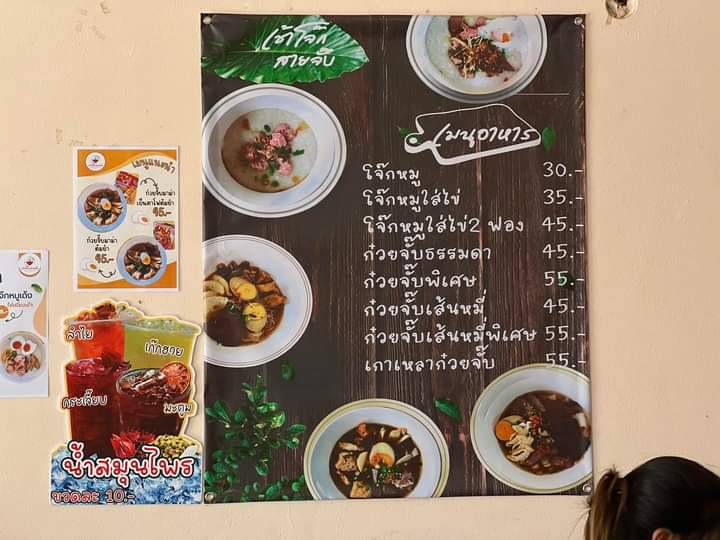 เช้าโจ๊ก
สายจั๊บ
เมนูอาหาร
โจ๊กหมู 30.-
โจ๊กหมูใส่ไข่ 35.-
โจ๊กหมูใส่ไข่2 ฟอง 45.-
ก๋วยจั๊บธรรมดา 45.-
ก๋วยจั๊บพิเศษ 55.-
ก๋วยจั๊บเส้นหมี่ 45.-
ก๋วยจั๊บเส้นหมี่พิเศษ 55.-
เกาเหลาก๋วยจั๊บ 55.-
เมนูแนะนำ
ก๋วยจั๊บมาม่า
เย็นตาโฟต้มยำ
45.-
ก๋วยจั๊บมาม่า
ต้มยำ
45.-
จ๊กหมูเด้ง
ลำไย
เก๊กฮวย
กระเจี๊ยบ
มะตูม
น้ำสมุนไพร
ขวดละ 10.-